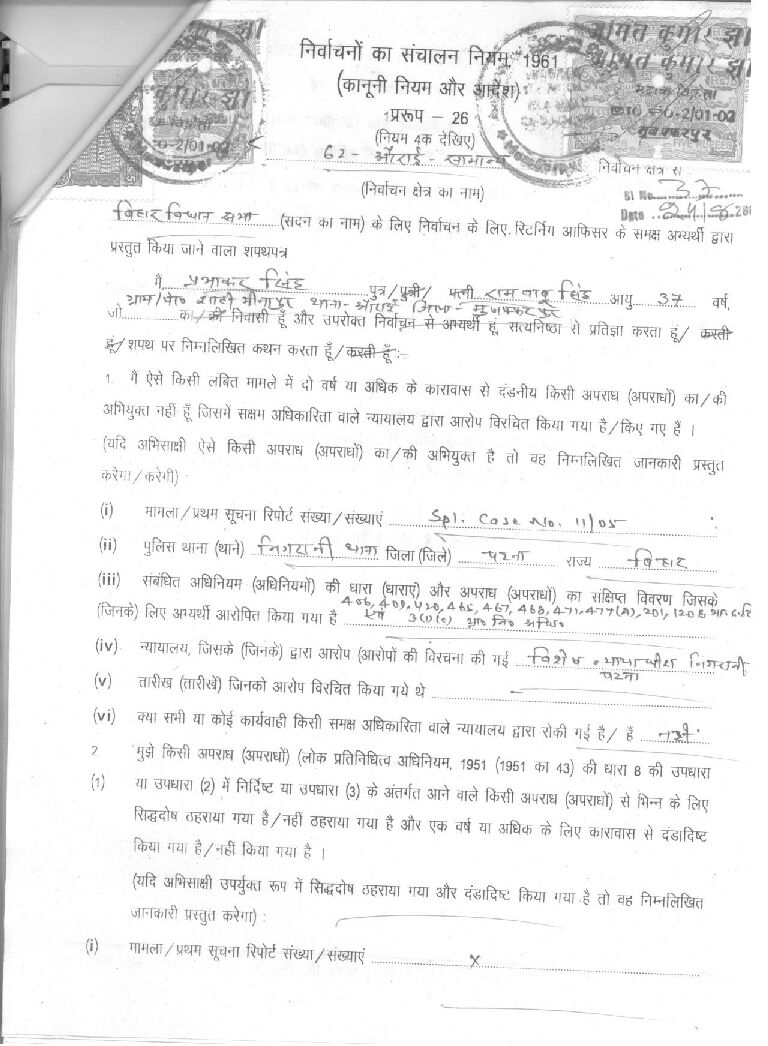 निर्वाचनों का संचालन नियम, 1961
(कानूनी नियम और आदेश)
प्ररूप – 26
(नियम 4क देखिए)
62- औराई - सामान्य
निर्वाचन क्षेत्र स
(निर्वाचन क्षेत्र का नाम)
Sl No. 33
बिहार विधान सभा (सदन का नाम) के लिए निर्वाचन के लिए रिटर्निंग आफिसर के समक्ष अभ्यर्थी द्वारा
प्रस्तुत किया जाने वाला शपथपत्र
मैं प्रभाकर सिंह पुत्र/पुत्री/ पत्नी राम बाबू सिंह आयु 37 वर्ष,
ग्राम/पो० शाही मीनापुर थाना- औराई जिला- मुजफ्फरपुर
जो का/की निवासी हूँ और उपरोक्त निर्वाचन से अभ्यर्थी हूं, सत्यनिष्ठा से प्रतिज्ञा करता हूं/ करती
हूं/शपथ पर निम्नलिखित कथन करता हूँ/करती हूँ:-
1. मैं ऐसे किसी लंबित मामले में दो वर्ष या अधिक के कारावास से दंडनीय किसी अपराध (अपराधों) का/की
अभियुक्त नहीं हूँ जिसमें सक्षम अधिकारिता वाले न्यायालय द्वारा आरोप विरचित किया गया है/किए गए हैं ।
(यदि अभिसाक्षी ऐसे किसी अपराध (अपराधों) का/की अभियुक्त है तो वह निम्नलिखित जानकारी प्रस्तुत
करेगा/करेगी)
(i) मामला/प्रथम सूचना रिपोर्ट संख्या/संख्याएं Spl. Case No. 11/05
(ii) पुलिस थाना (थाने) निगरानी थाना जिला(जिले) पटना राज्य बिहार
(iii) संबंधित अधिनियम (अधिनियमों) की धारा (धाराएं) और अपराध (अपराधों) का संक्षिप्त विवरण जिसके
406, 409, 420, 465, 467, 468, 471, 477(A), 201, 120B
(जिनके) लिए अभ्यर्थी आरोपित किया गया है एवं भ्र० नि० अधि०
(iv) न्यायालय, जिसके (जिनके) द्वारा आरोप (आरोपों की विरचना की गई विशेष न्यायाधीश निगरानी
पटना
(v) तारीख (तारीखें) जिनको आरोप विरचित किया गये थे
(vi) क्या सभी या कोई कार्यवाही किसी समक्ष अधिकारिता वाले न्यायालय द्वारा रोकी गई है/ हैं नहीं
2 मुझे किसी अपराध (अपराधों) (लोक प्रतिनिधित्व अधिनियम, 1951 (1951 का 43) की धारा 8 की उपधारा
(1) या उपधारा (2) में निर्दिष्ट या उपधारा (3) के अंतर्गत आने वाले किसी अपराध (अपराधों) से भिन्न के लिए
सिद्धदोष ठहराया गया है/नहीं ठहराया गया है और एक वर्ष या अधिक के लिए कारावास से दंडादिष्ट
किया गया है/नहीं किया गया है ।
(यदि अभिसाक्षी उपर्युक्त रूप में सिद्धदोष ठहराया गया और दंडादिष्ट किया गया है तो वह निम्नलिखित
जानकारी प्रस्तुत करेगा) :
(i) मामला/प्रथम सूचना रिपोर्ट संख्या/संख्याएं x